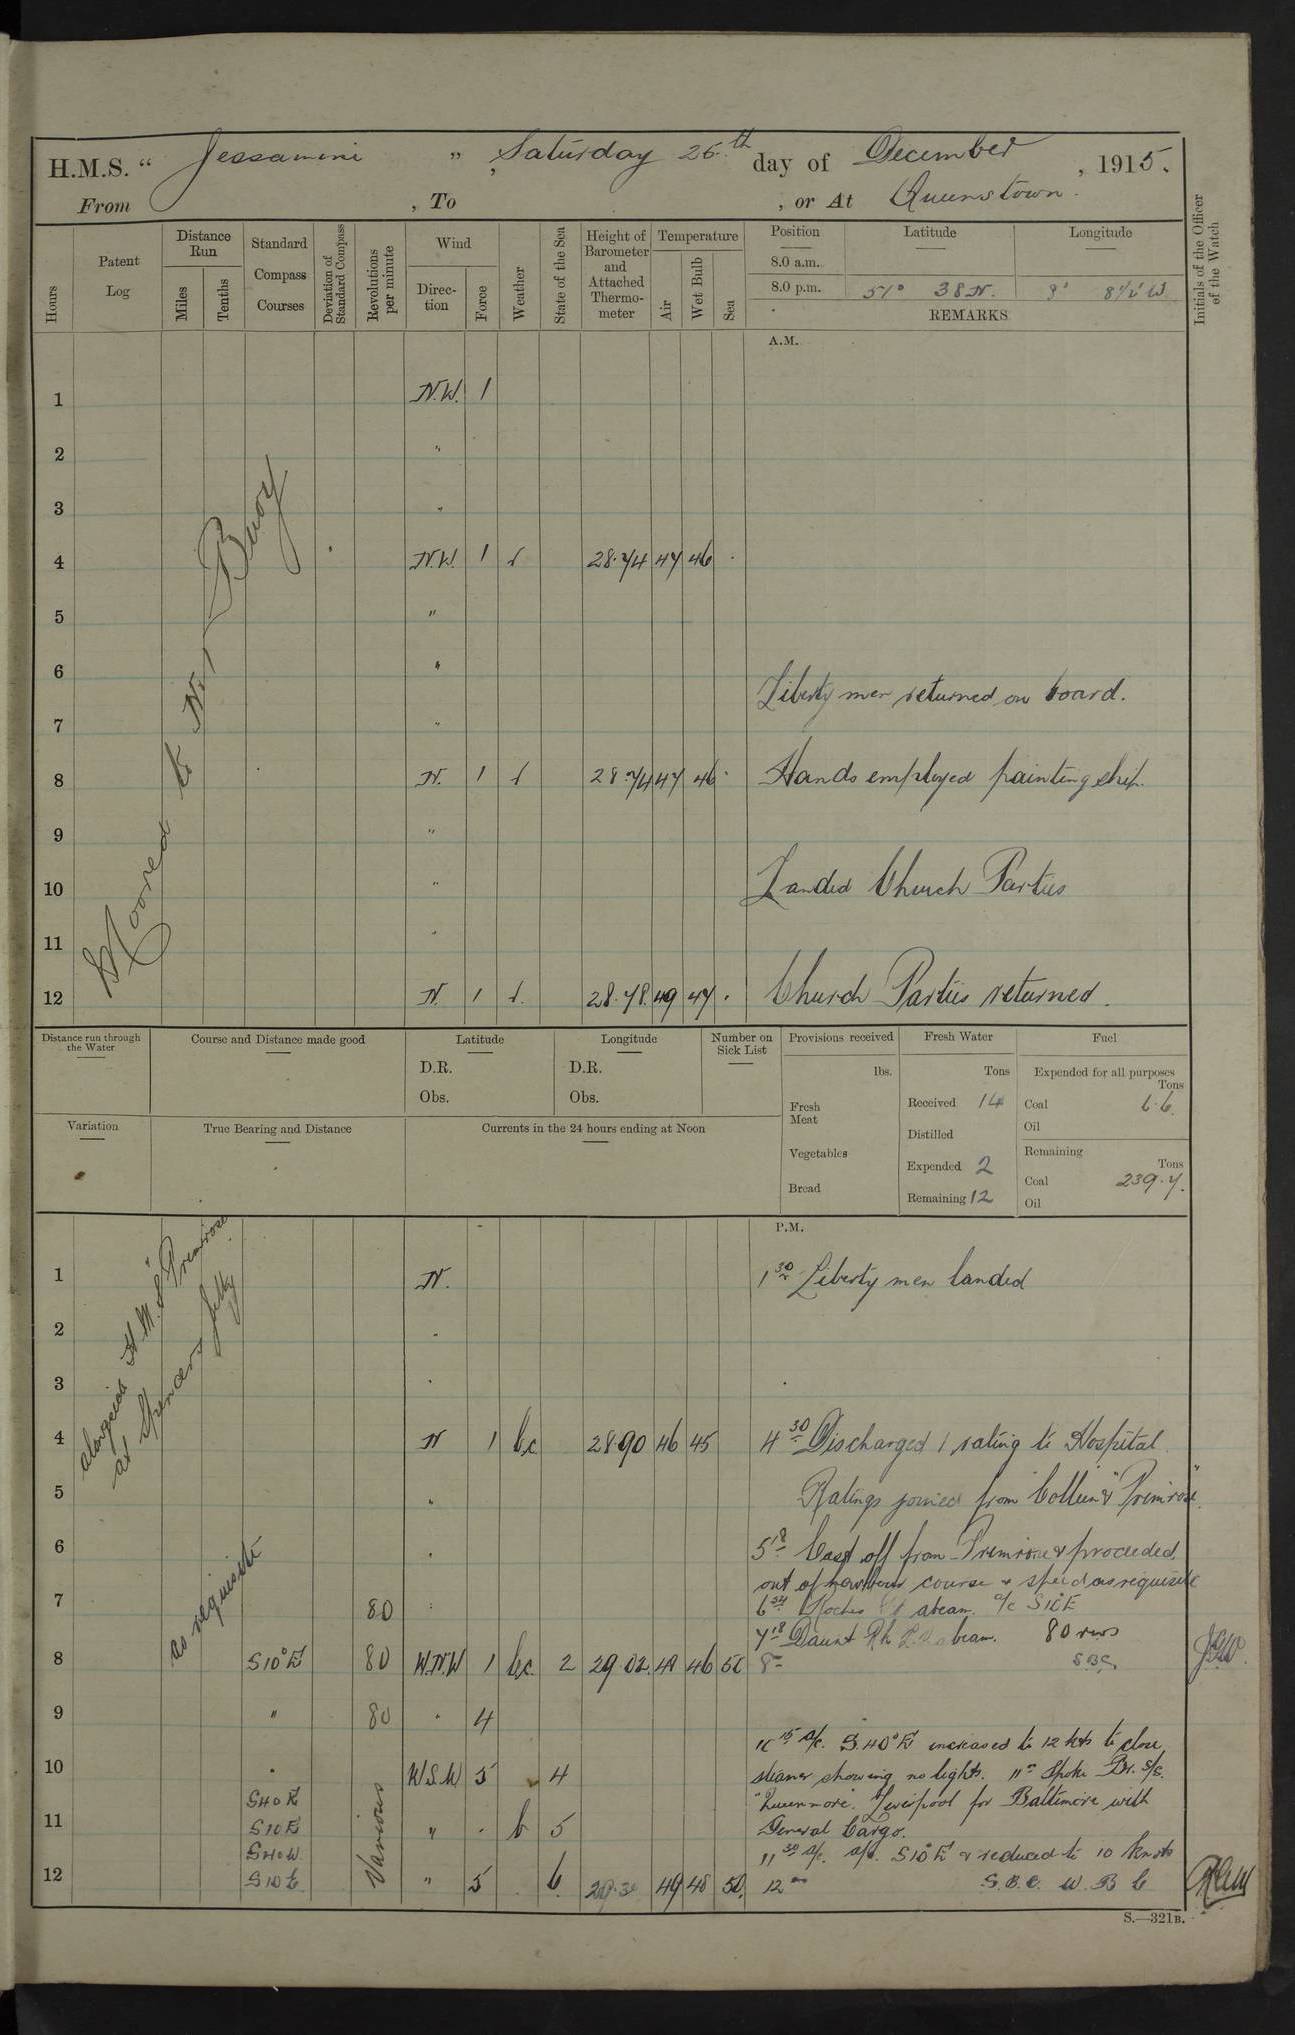 H.M.S. " Jessamine ", Saturday 25th day of December, 1915.
From , To , or At Queenstown.
Hours
Patent Log
Distance Run
Miles
Tenths
Standard Compass Courses
Deviation of Standard Compass
Revolutions per minute
Wind
Direction
Force
Weather
State of the Sea
Height of Barometer and Attached Thermometer
Temperature
Air
Wet Bulb
Sea
Position
Latitude
Longitude
8.0 a.m.
8.0 p.m. 51° 38 N. 8° 8½' W
REMARKS
Initials of the Officer of the Watch
A.M.
Moored to No 1 Buoy
1 N.W. 1
2 "
3 "
4 N.W. 1 28.74 47 46
5 "
6 "
Liberty men returned on board.
7 "
8 N. 1 28.74 47 46 Hands employed painting ship.
9 "
10 " Landed Church Parties
11 "
12 N. 1 28.78. 49 47 Church Parties returned.
Distance run through the Water
Course and Distance made good
Latitude
D.R.
Obs.
Longitude
D.R.
Obs.
Number on Sick List
Provisions received
lbs.
Fresh Meat
Vegetables
Bread
Fresh Water
Tons
Received 14
Distilled
Expended 2
Remaining 12
Fuel
Expended for all purposes
Tons
Coal 6.6.
Oil
Remaining
Tons
Coal 239.7.
Oil
Variation
True Bearing and Distance
Currents in the 24 hours ending at Noon
P.M.
alongside H.M.S "Primrose"
at Spencers Jetty
1 N. 1 30 Liberty men landed
2 "
3 "
4 N 1 bc 28.90 46 45 4 30 Discharged 1 rating to Hospital
5 " Ratings joined from Colleen & "Primrose".
6 " 5 18 Cast off from Primrose & proceeded
out of harbour course & speed as requisite
as requisite
7 80 6 54 Roches Pt abeam. a/c S10°E
7 18 Daunt Rk L.V. abeam. 80 revs
8 S10°E 80 W.N.W 1 bc 2 29.02. 48 46 50 8 S.B.C.
9 " 80 " 4
10 15 a/c. S.40°E increased to 12 kts to close
10 " W.S.W 5 4 steamer showing no lights. 11 Spoke Br. S/S.
S40E "Quernmore". Liverpool for Baltimore with
11 S10E " b 5 General Cargo.
S40W 11 30 a/c. S10°E & reduced to 10 knots
12 S10E Various " 5 6 49 48 50. 12 S.B.C. W. B C
S.—321B.